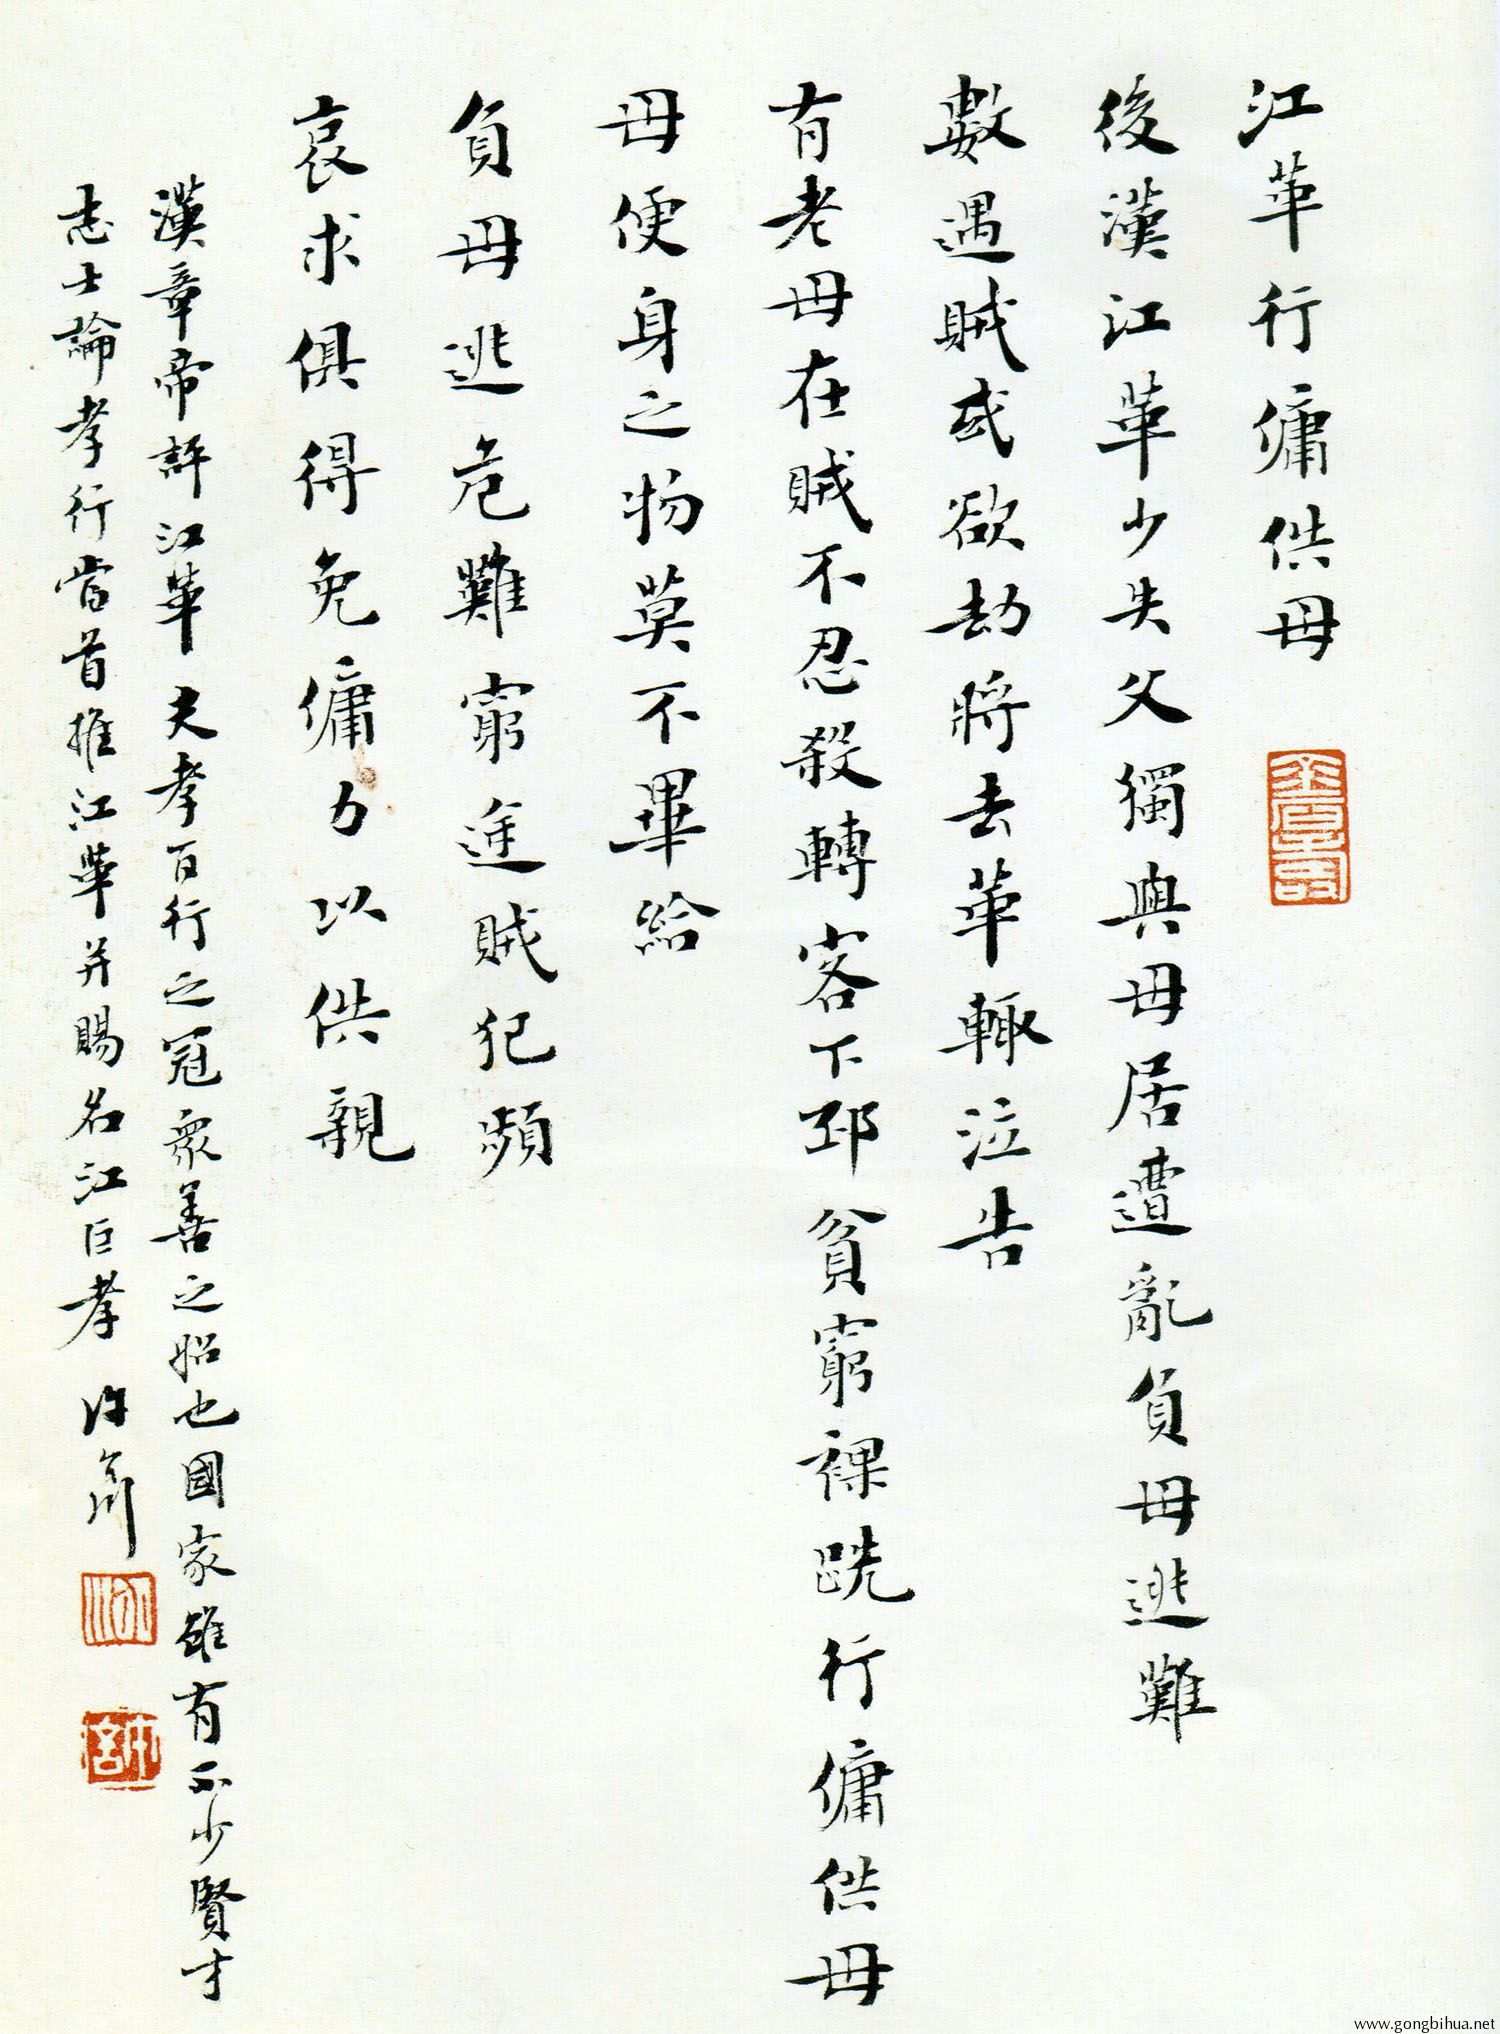 江革行傭供母
後漢江革少失父獨與母居遭亂負母逃難
數遇賊或欲劫將去革輒泣告
有老母在賊不忍殺轉客下邳貧窮裸跣行傭供母
母便身之物莫不畢給
負母逃危難窮途賊犯頻
哀求俱得免傭力以供親
漢章帝評江革 夫孝百行之冠衆善之始也國家雖有不少賢才
志士論孝行當首推江革并賜名江巨孝
www.gongbihua.net